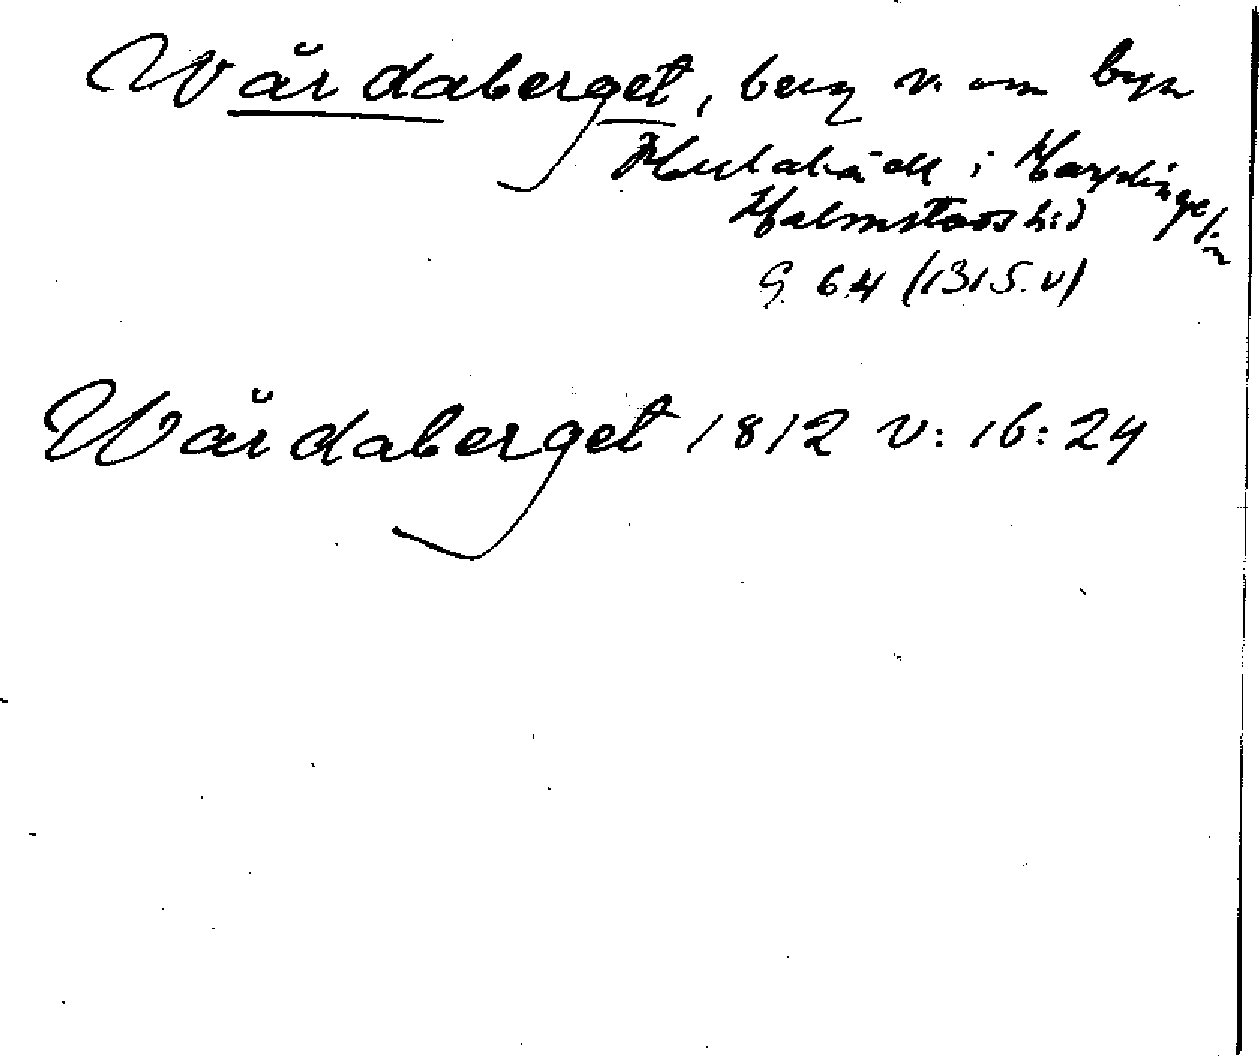 Wårdaberget, berg v. om byn
Hulabäck i Harplinge sn
Halmstads hd
G. 64 (1315.v)
Wårdaberget 1812 v: 16: 24